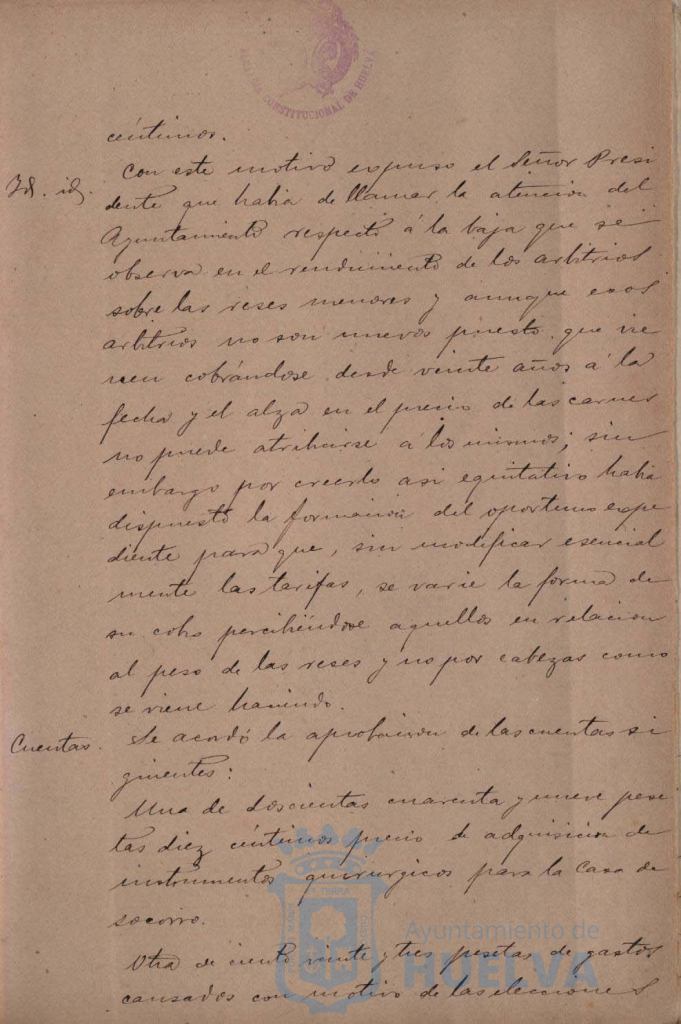 ALCALDIA CONSTITUCIONAL DE HUELVA
céntimos.
Id. id. Con este motivo expuso el Señor Presi
dente que habia de llamar la atencion del
Ayuntamiento respecto á la baja que se
observa en el rendimiento de los arbitrios
sobre las reses menores y aunque esos
arbitrios no son nuevos puesto que vie
nen cobrándose desde veinte años á la
fecha y el alza en el precio de las carnes
no puede atribuirse á los mismos; sin
embargo por creerlo asi equitativo habia
dispuesto la formacion del oportuno expe
diente para que, sin modificar esencial
mente las tarifas, se varie la forma de
su cobro percibiéndose aquellos en relacion
al peso de las reses y no por cabezas como
se viene haciendo.
Cuentas. Se acordó la aprobacion de las cuentas si
guientes:
Una de doscientas cuarenta y nueve pese
tas diez céntimos precio de adquisicion de
instrumentos quirurgicos para la Casa de
socorro.
Otra de ciento veinte y tres pesetas de gastos
causados con motivo de las elecciones
Ayuntamiento de
HUELVA